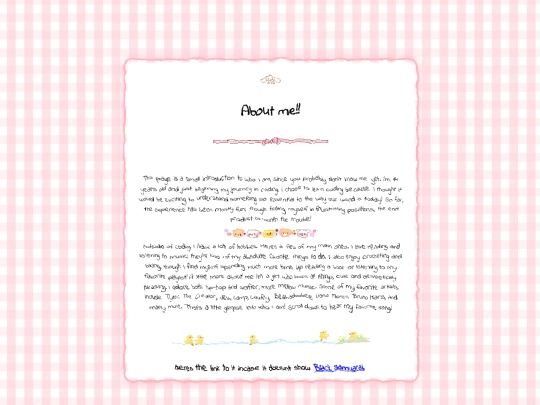 About me!!
This page is a small introduction to who i am, since you probably don't know me yet. I'm 14
years old and just beginning my journey in coding. I chose to learn coding because i thought it
would be exciting to understand something so essential to the way our world is today! So far,
the experience has been mostly fun though finding myself in frustrating positions, the end
product is worth the trouble!
outside of coding i have a lots of hobbies. Here's a few of my main ones. I love reading and
listening to music they're two of my absolute favorite things to do. I also enjoy crocheting and
baking though i find myself spending much more time up reading a book or listening to my
favorite playlist! a little more about me: i'm a girl who loves all things cute and aesthetically
pleasing i adore both hip-hop and softer, more mellow music. Some of my favorite artists
include Tyler The Creator, Steve Lacy, Laufey, Beabadoobee, Bruno Mars, and
many more. That's a little glimpse into who i am! scroll down to hear my favorite song!
here's the link to it incase it doesn't show Black Samurai